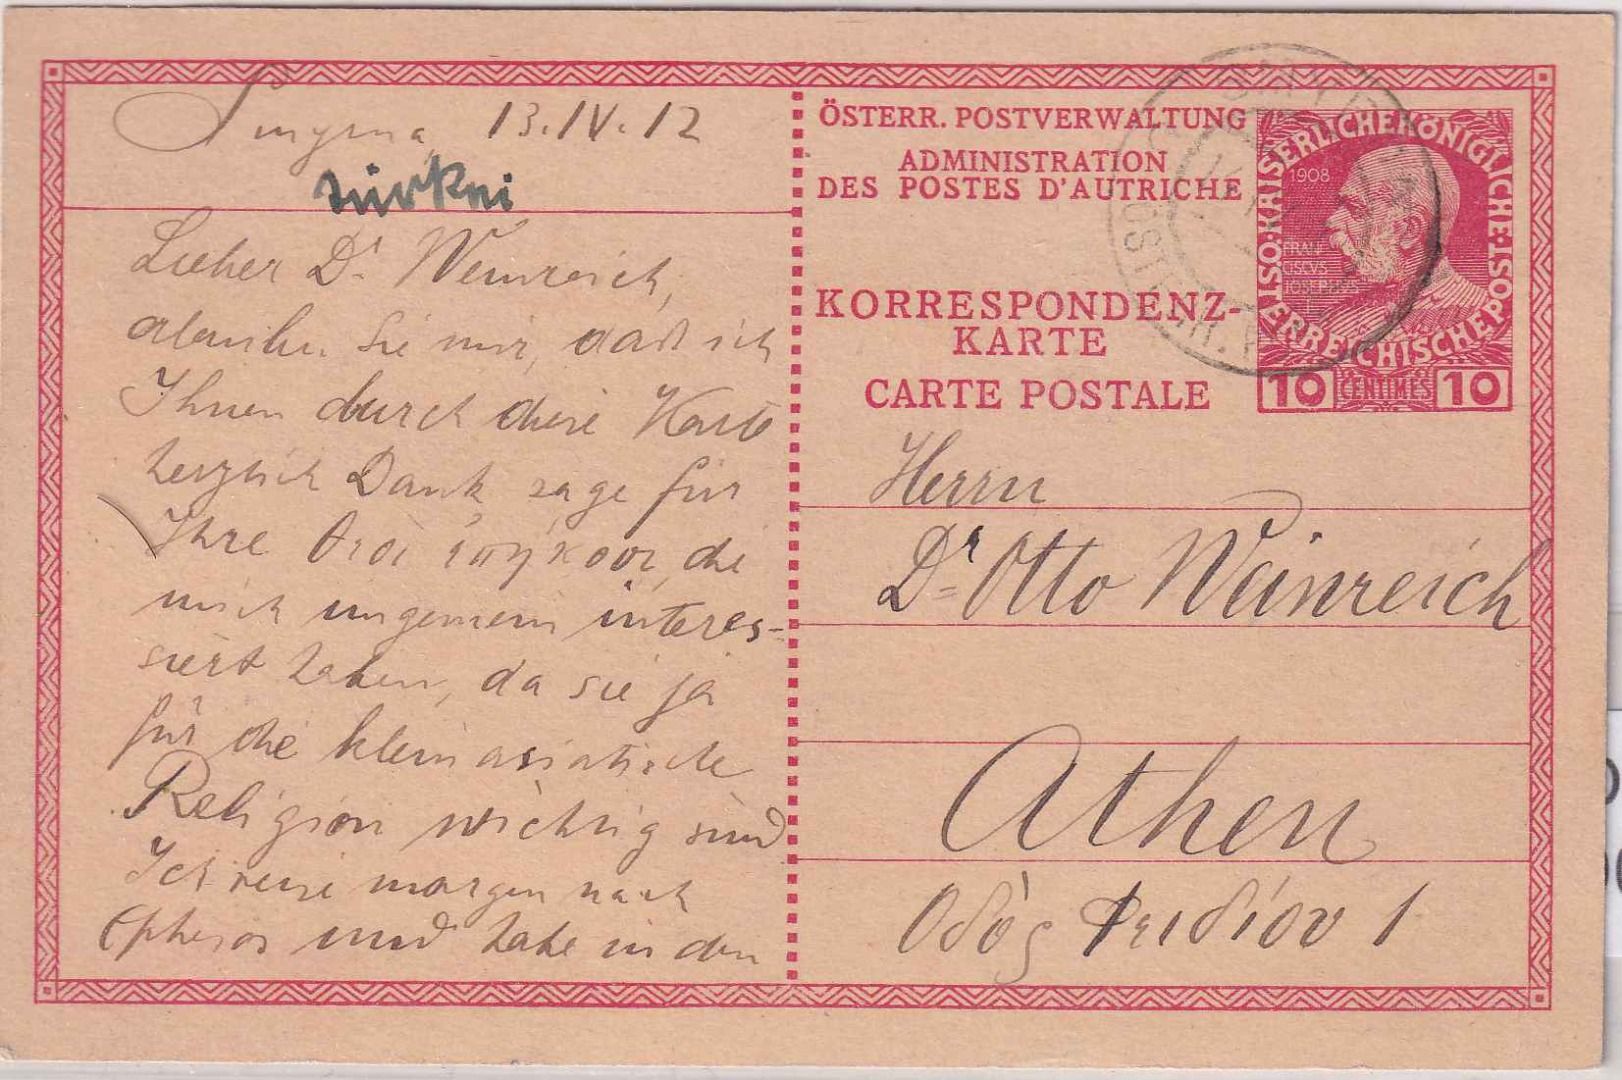 Smyrna, 13.IV.12
Türkei
Lieber Dr. Weinreich,
erlauben Sie mir, daß ich
Ihnen durch diese Karte
herzlich Dank sage für
Ihre Θεοὶ ἐπήκοοι, die
mich ungemein interes-
siert haben, da sie ja
für die kleinasiatische
Religion wichtig sind
Ich reise morgen nach
Ephesos und habe in den
ÖSTERR. POSTVERWALTUNG
ADMINISTRATION
DES POSTES D'AUTRICHE
KORRESPONDENZ-
KARTE
CARTE POSTALE
KAISERLICHE KÖNIGLICHE ÖSTERREICHISCHE POST
1908
FRAN
CISCVS
IOSEPHVS
10 CENTIMES 10
SMYRN
ÖSTERR. P
Herrn
Dr Otto Weinreich
Athen
Οδὸς Φειδίου 1